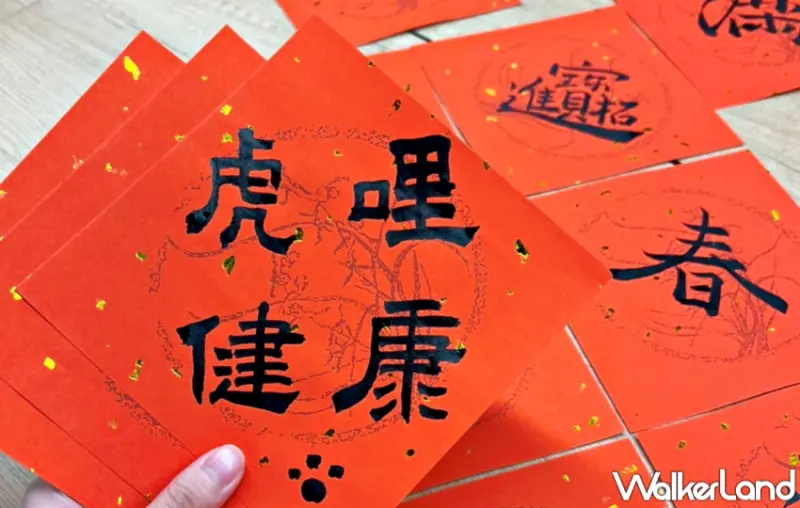 虎哩
健康
招財進寶
春
WALKERLAND